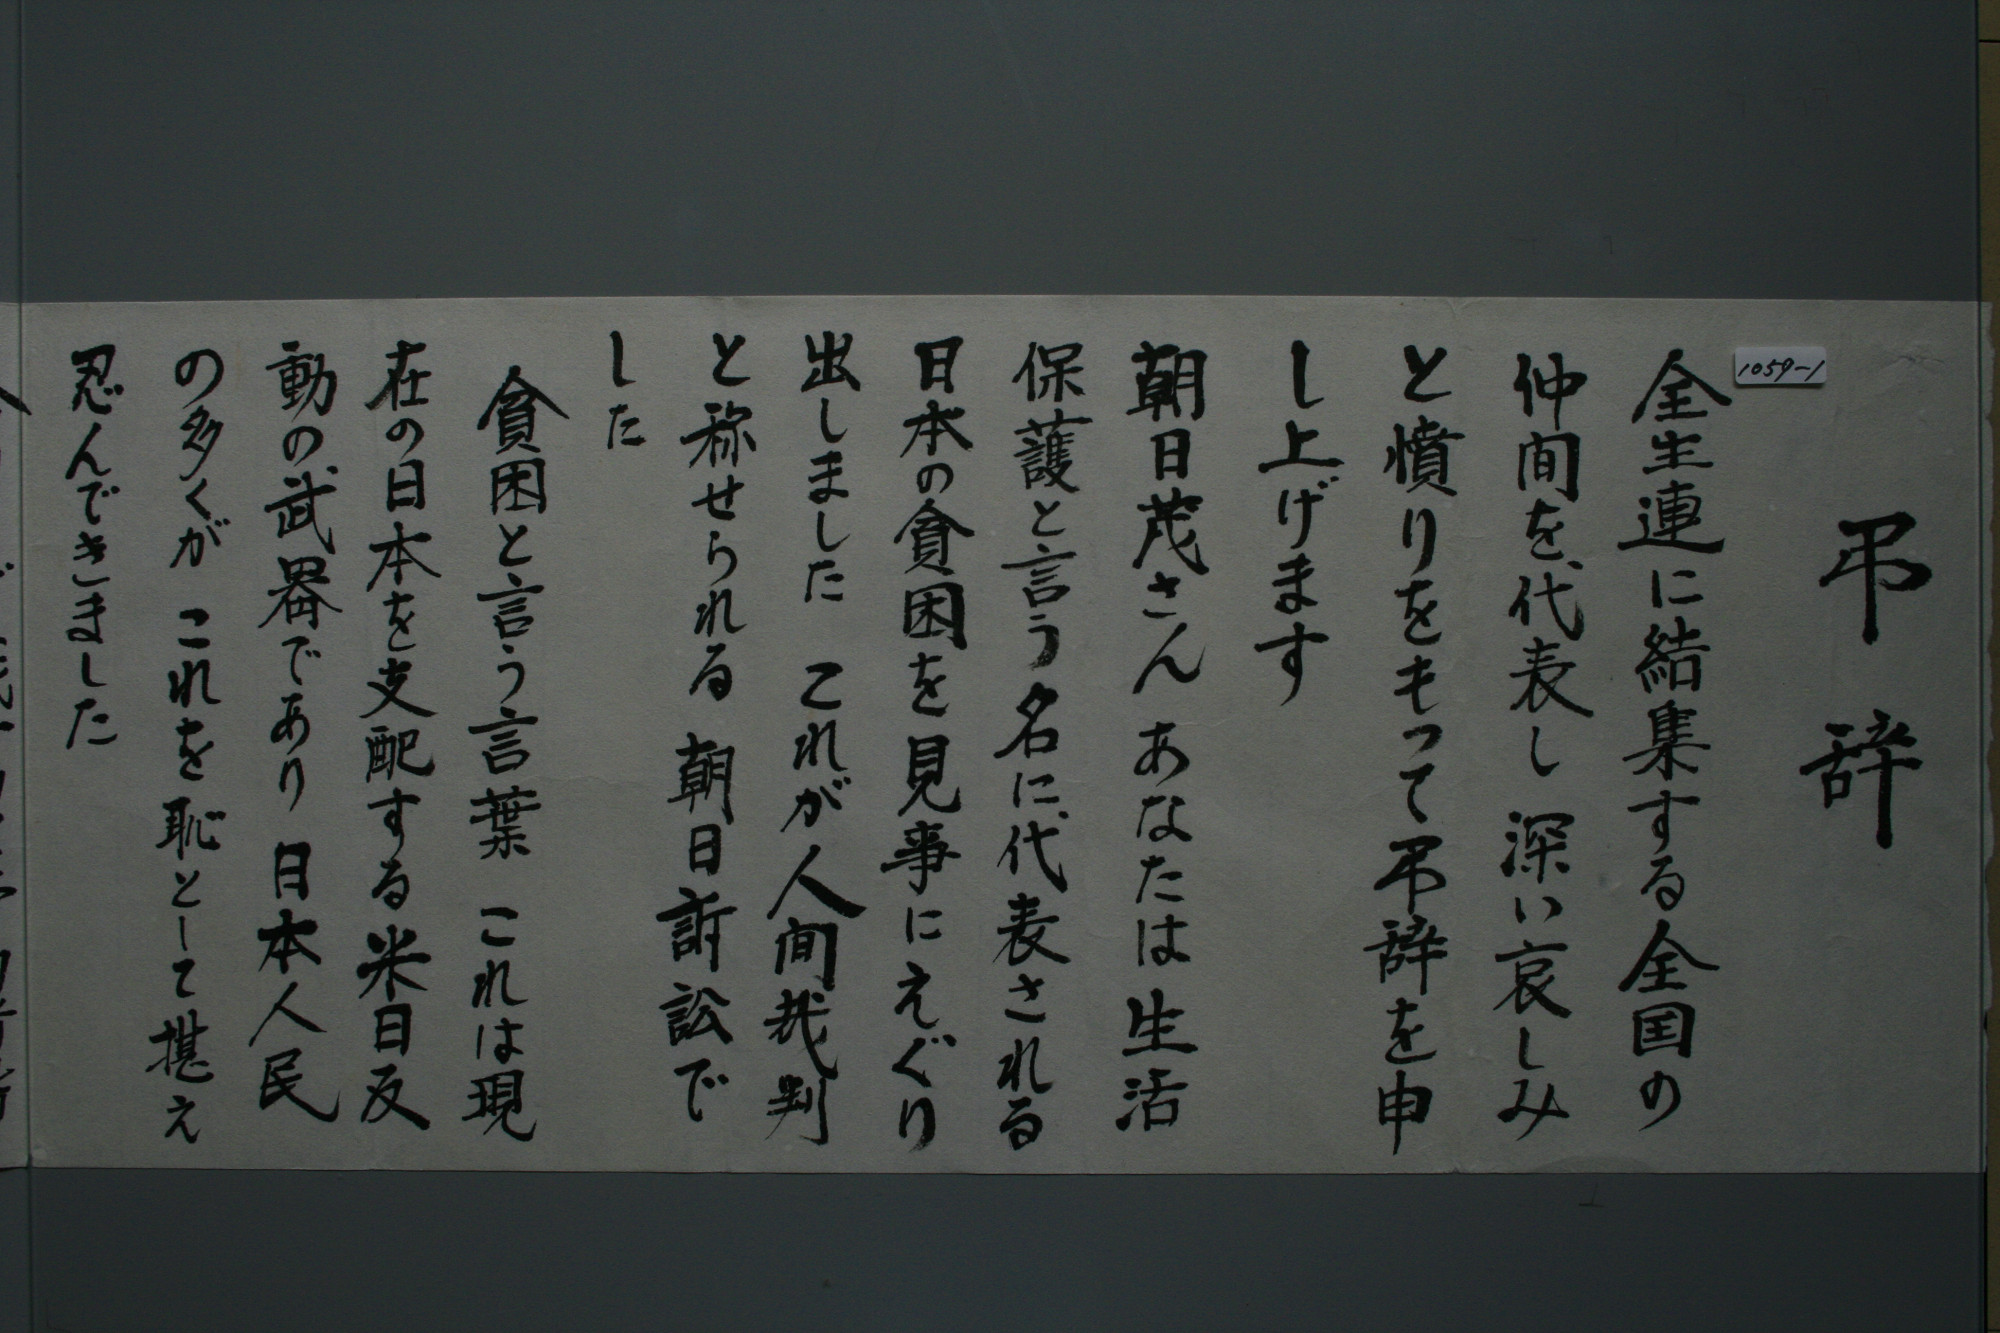 弔辞
1059-1
全生連に結集する全国の
仲間を代表し 深い哀しみ
と憤りをもって弔辞を申
し上げます
朝日茂さん あなたは生活
保護と言う名に代表される
日本の貧困を見事にえぐり
出しました これが人間裁判
と称せられる 朝日訴訟で
した
貧困と言う言葉 これは現
在の日本を支配する米日反
動の武器であり 日本人民
の多くが これを恥として堪え
忍んできました